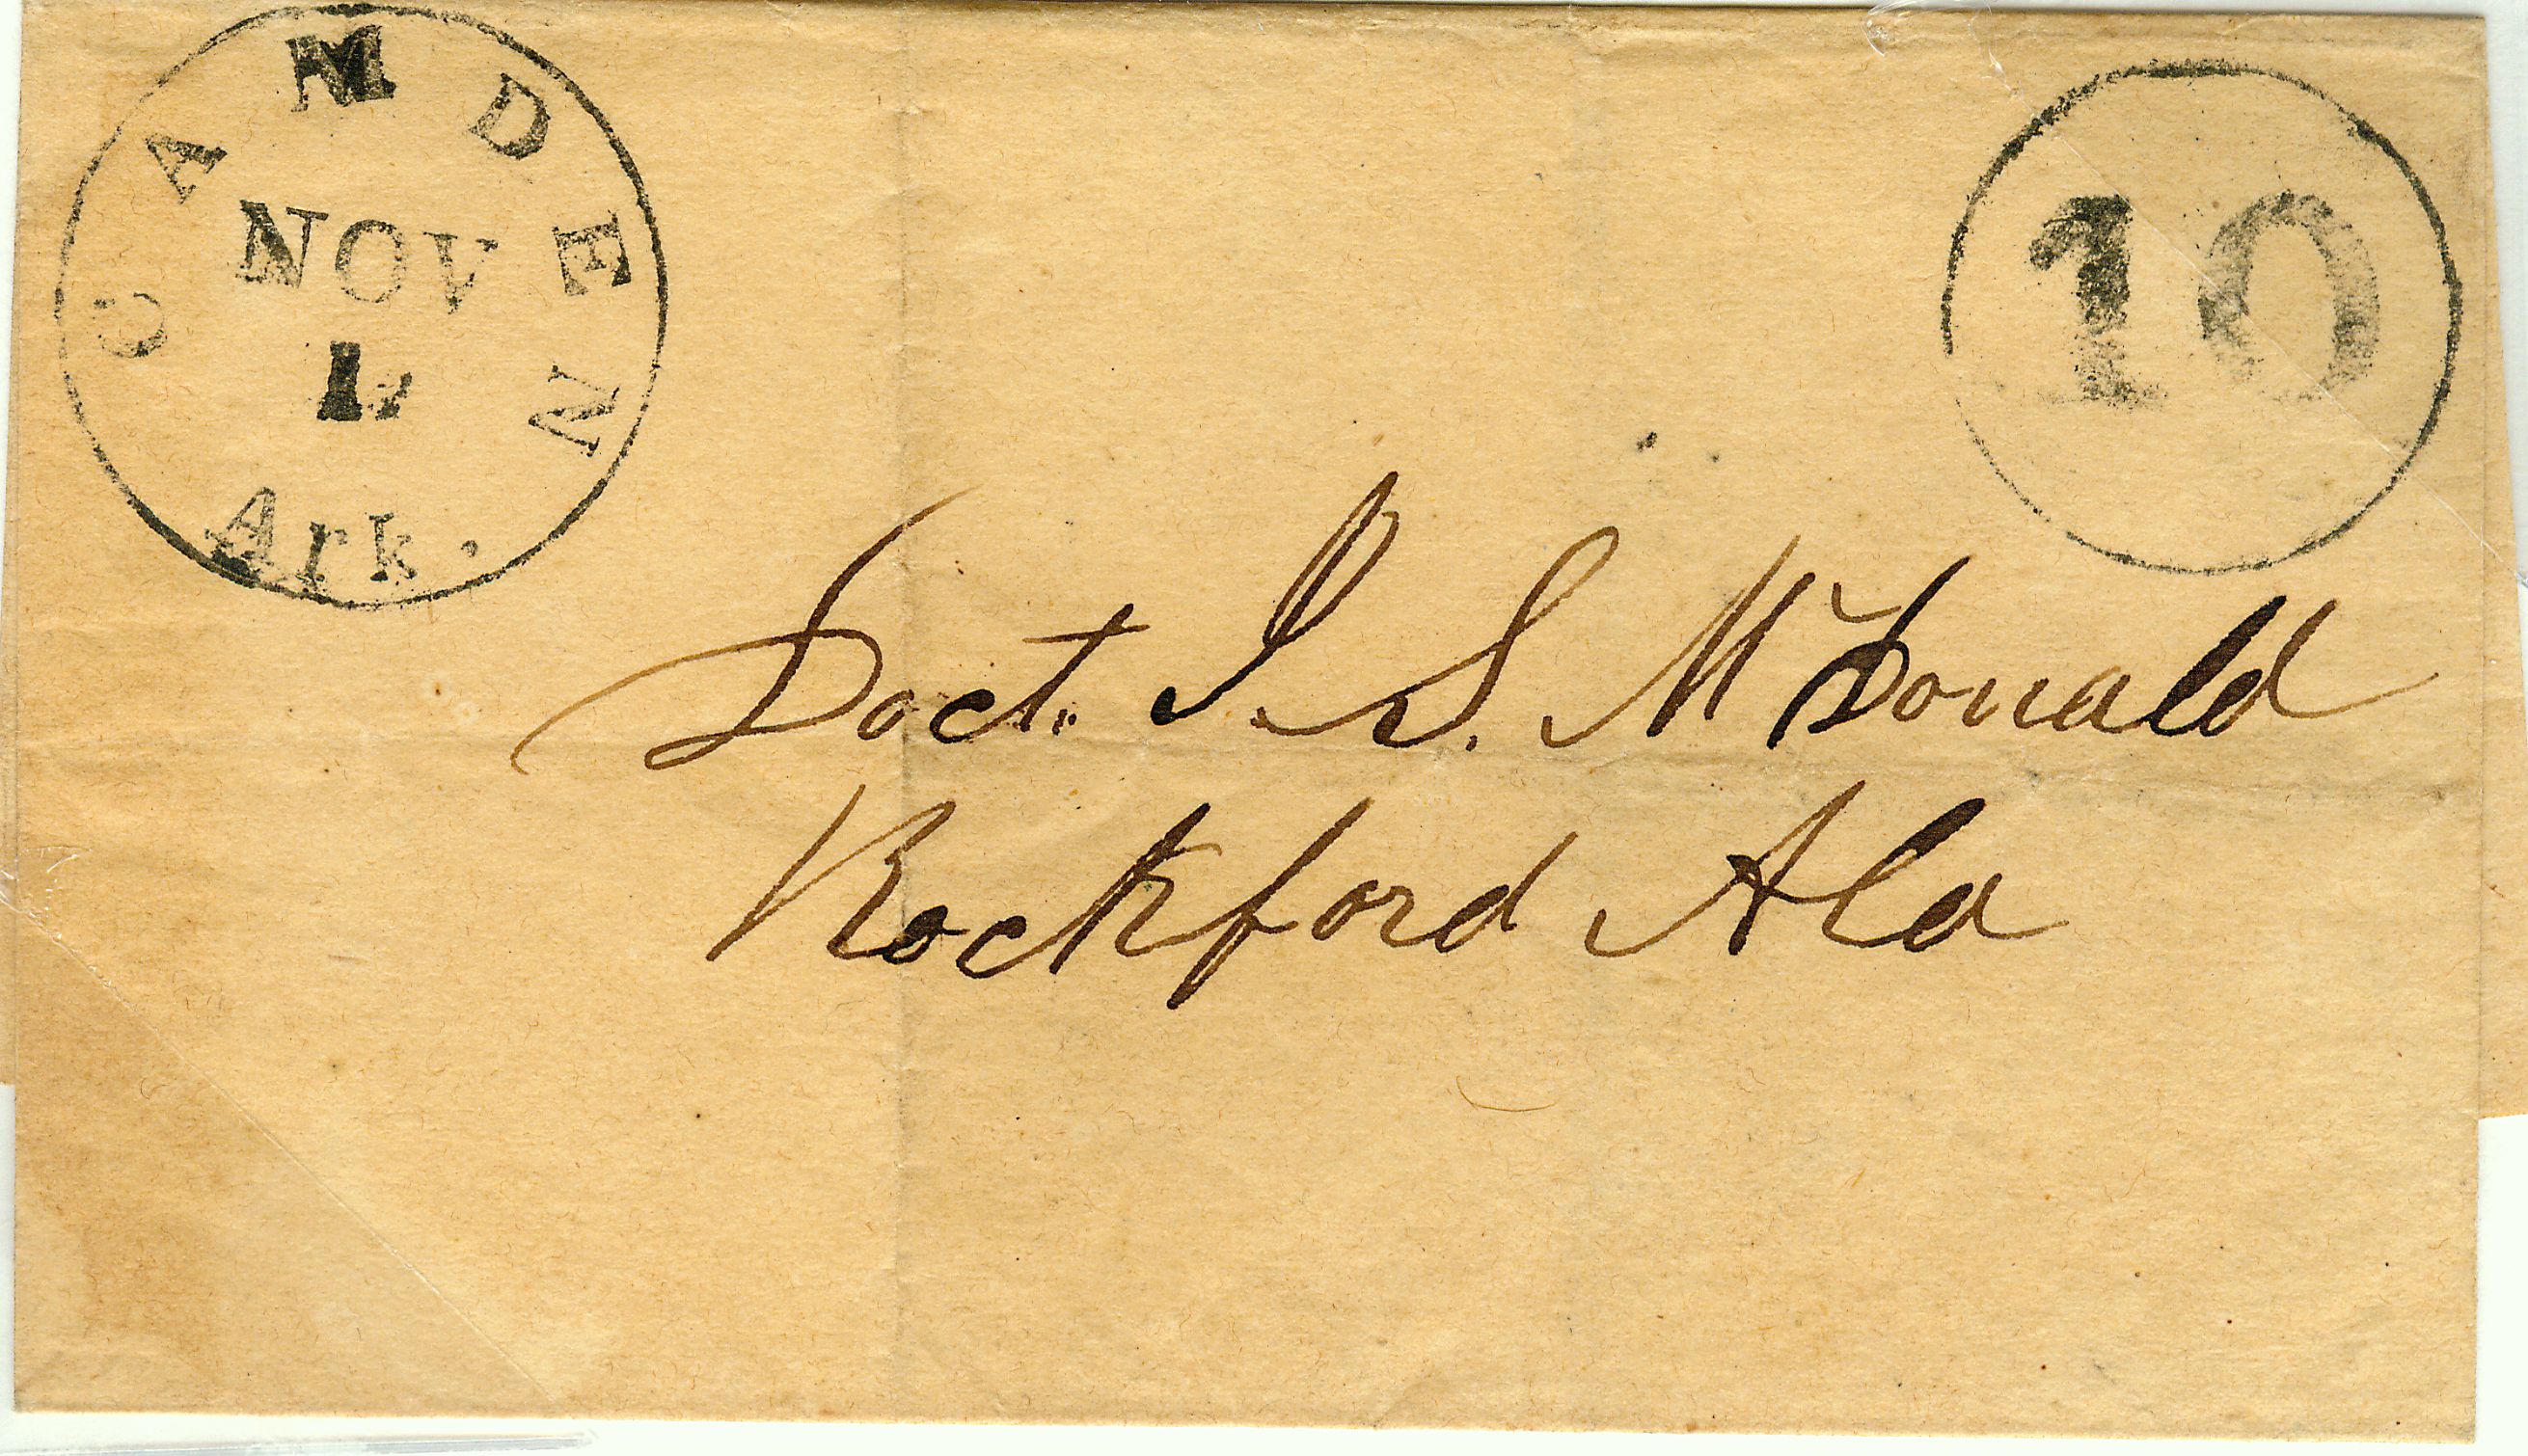 CAMDEN
NOV
Ark.
10
Doct. J. S. McDonald
Rockford Ala